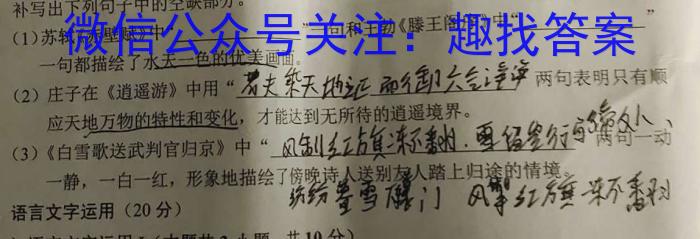 补写出下列句子中的空缺部分。
微信公众号关注：趣找答案
(1)苏轼《赤壁赋》中“ ”一句和王勃《滕王阁序》中“ ”
一句都描绘了水天一色的优美画面。
(2) 庄子在《逍遥游》中用“ 若夫乘天地之正 而御六气之 两句表明只有顺
应天地万物的特性和变化，才能达到无所待的逍遥境界。
(3)《白雪歌送武判官归京》中“ 风掣红旗冻不翻 两句一动
一静，一白一红，形象地描绘了傍晚诗人送别友人踏上归途的情境。
纷纷暮雪 门 风掣红旗冻不翻
语言文字运用（20分）